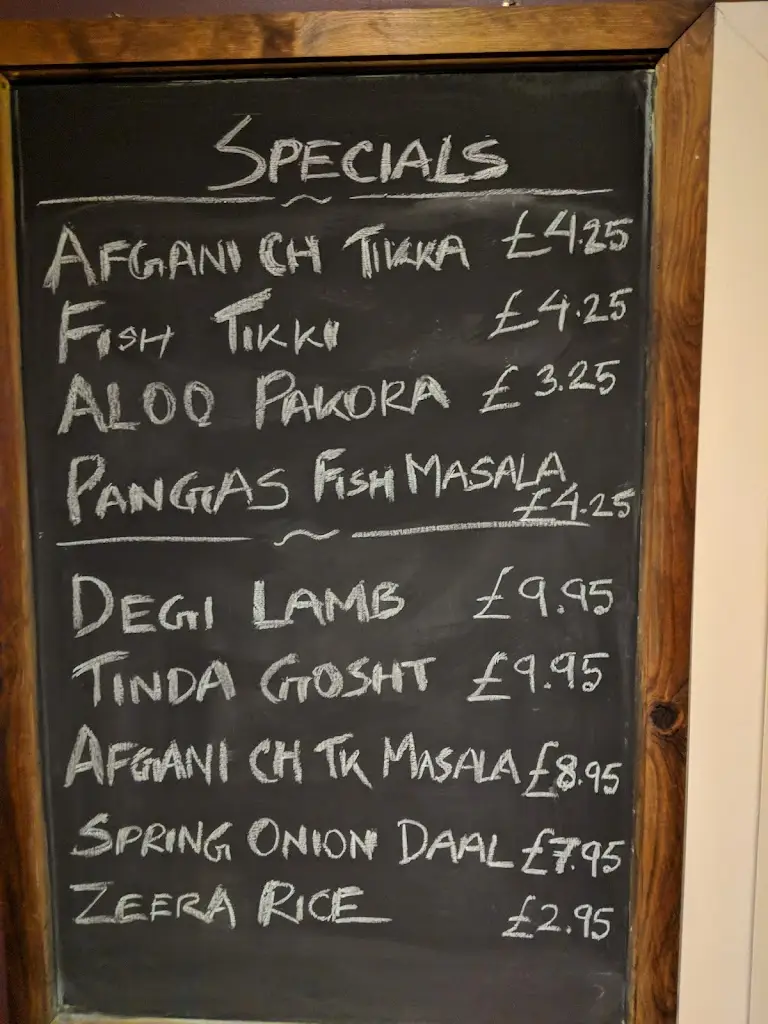 SPECIALS
AFGANI CH TIKKA £4.25
FISH TIKKI £4.25
ALOO PAKORA £3.25
PANGAS FISH MASALA
£4.25
DEGI LAMB £9.95
TINDA GOSHT £9.95
AFGANI CH TK MASALA £8.95
SPRING ONION DAAL £7.95
ZEERA RICE £2.95